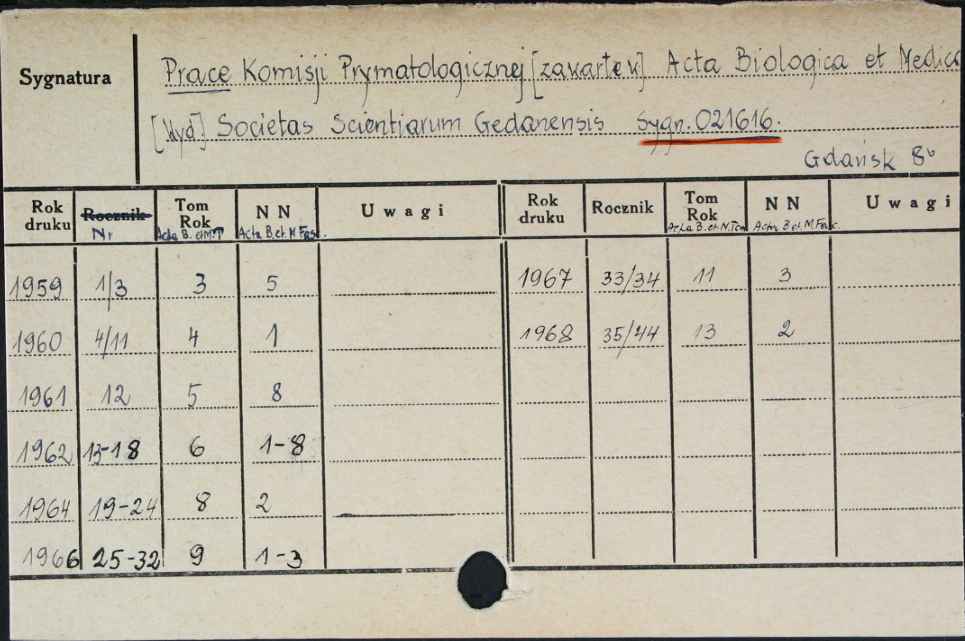 Sygnatura
Prace Komisji Prymatologicznej [zawarte w] Acta Biologica et Medica
[Wyd] Societas Scientiarum Gedanensis Sygn. 021616.
Gdańsk 8°
Rok druku Rocznik Tom Rok NN Uwagi Rok druku Rocznik Tom Rok NN Uwagi
Nr Acta B. et M. T Acta B. et. M Fasc. Acta B. et. M. Tom Acta B. et M. Fasc.
1959 1/3 3 5 1967 33/34 11 3
1960 4/11 4 1 1968 35/44 13 2
1961 12 5 8
1962 13-18 6 1-8
1964 19-24 8 2
1966 25-32 9 1-3